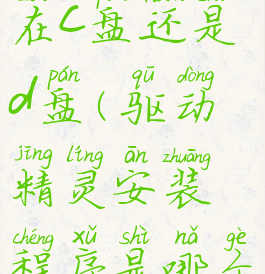 在C盘还是
pán qū dòng
d盘(驱动
jīng líng ān zhuāng
精灵安装
chéng xǔ shì nǎ gè
程序是哪个